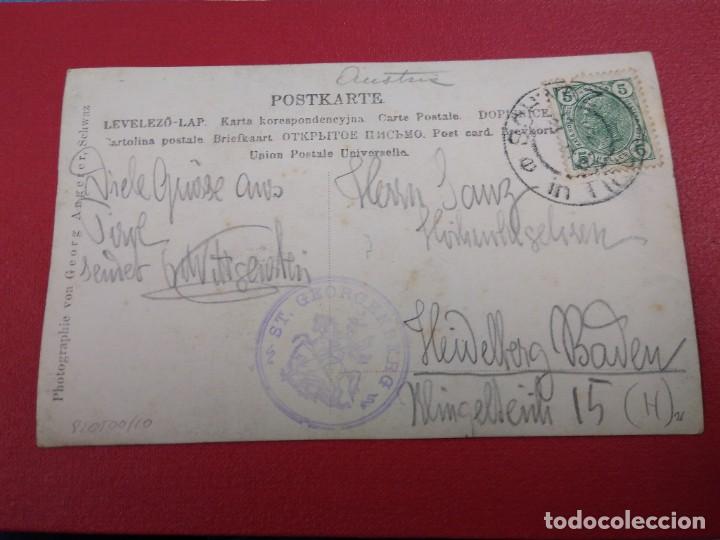 Austria
POSTKARTE.
LEVELEZŐ-LAP. Karta korespondencyjna Carte Postale. DOPISNICE.
Cartolina postale Briefkaart ОТКРЫТОЕ ПИСЬМО. Post card. Brevkort
Union Postale Universelle.
Photographie von Georg Angerer, Schwaz
5 5
5 5
Viele Grüsse aus
sendet
Herrn
Heidelberg Baden
Klingelteich 15 (H)
ST. GEORGENBERG